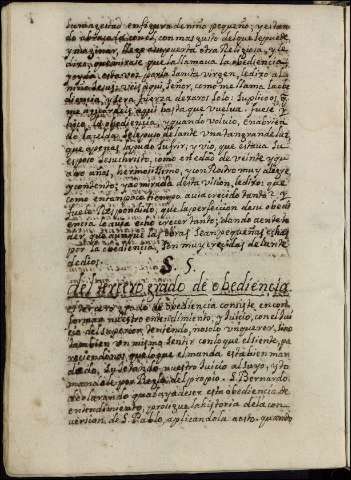 su magestad en figura de niño pequeño; y estan
do abrazada con el, con mas gusto del que se puede
ymaginar, llega a su puerta otra Religiosa, y le
dize, que mirase que la llamava la obediencia,
y oyda esta voz por la santa virgen, le dixo al a
niño Jesus: veis aqui, Señor, como me llama la obe
diencia, y sera fuerza dexaros solo: suplicoos q
me aguardeis aqui hasta que vuelva: fuese y
hizo la obediencia, y quando volvio, en abrien
do la celda, se le puso delante una tan grande luz
que apenas la pudo sufrir, y vio, que estava su
esposo Jesuchristo, como en edad de veinte y qu
atro años, hermosissimo, y con Rostro muy alegre
y contento; y admirada desta vision, le dixo: que
como en tan poco tiempo avia crecido tanto? y
fuele Respondido, que la perfeccion de su obedi
encia le avia echo crecer tanto; dando a enten
der que aunque las obras sean pequeñas echas
por la obediencia, son muy crecidas delante
de dios.
§ 5.
del tercero grado de obediencia
el tercero grado de obediencia consiste en con
formar nuestro entendimiento, y Juicio, con el Jui
cio del superior, teniendo, no solo un querer, sino
tambien un mismo sentir con lo que el siente, pa
reciendonos que lo que el manda esta bien man
dado, sujetando nuestro Juicio al suyo, y to
mandole por Regla del propio. S. Bernardo
declarando qual aya de ser esta obediencia de
entendimiento, prosigue la historia de la con
version de S. Pablo, aplicandola a esto. quando